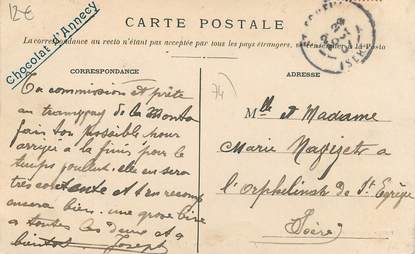 12€
Chocolat d'Annecy
CARTE POSTALE
La correspondance au recto n'étant pas acceptée par tous les pays étrangers, se renseigner à la Poste
CORRESPONDANCE
ADRESSE
74
Ta commission est prête
au tramway de la
fait ton possible pour
arriver a la finir pour le
temps voulu elle en sera
tres contente et t'en recomp
ensera bien. une grose bise
a toutes les deux et a
bientot Joseph
Mlle et Madame
Marie
l'orphelinat de St Egrève
Isère